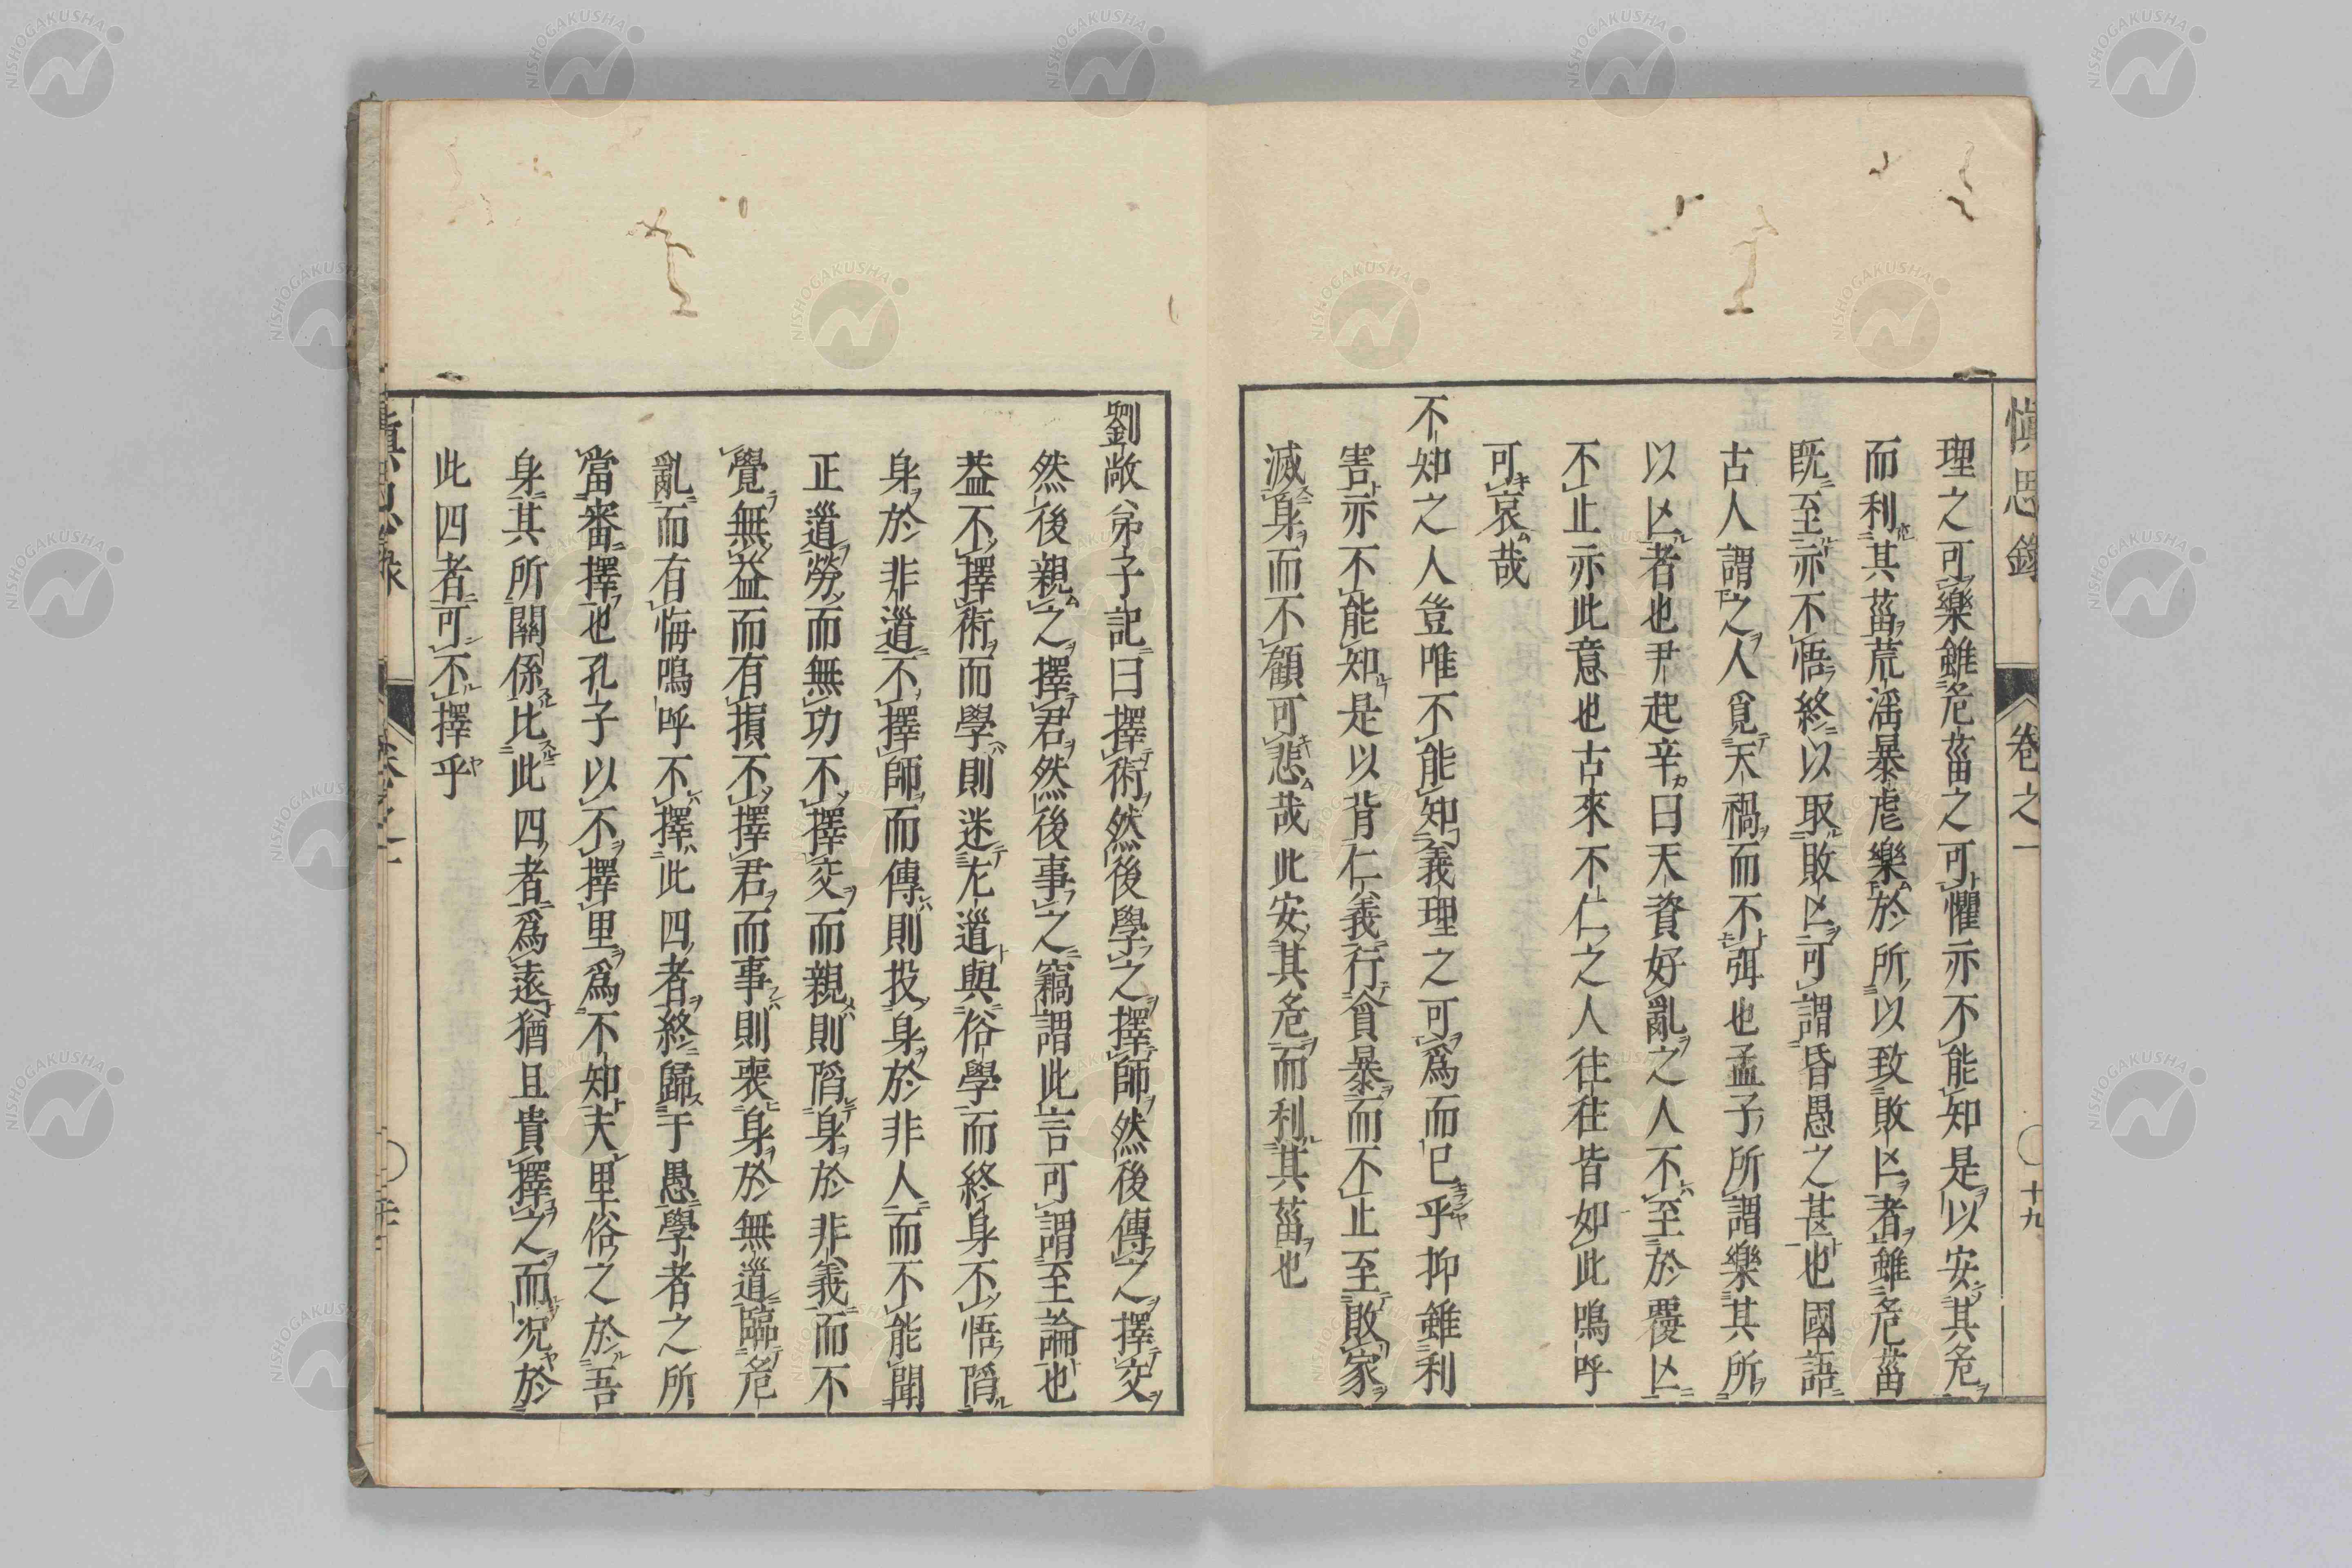 慎思錄 卷之一 〇十九
理之可樂雖危菑之可懼亦不能知是以安其危
而利其菑荒淫暴虐樂於所以致敗亾者雖危菑
既至亦不悟終以取敗亾可謂昏愚之甚也國語
古人謂之人覓天禍而不弭也孟子所謂樂其所
以亾者也尹起辛曰天資好亂之人不至於覆亾
不止亦此意也古來不仁之人往往皆如此鳴呼
可哀哉
不知之人豈唯不能知義理之可爲而已乎抑雖利
害亦不能知是以背仁義行貪暴而不止至敗家
滅身而不顧可悲哉此安其危而利其菑也
劉敞公弟子記曰擇術然後學之擇師然後傳之擇交
然後親之擇君然後事之竊謂此言可謂至論也
葢不擇術而學則迷尢道與俗學而終身不悟陷
身於非道不擇師而傳則投身於非人而不能聞
正道勞而無功不擇交而親則陷身於非義而不
覺無益而有損不擇君而事則喪身於無道臨危
亂而有悔鳴呼不擇此四者終歸于愚學者之所
當審擇也孔子以不擇里爲不知夫里俗之於吾
身其所關係比此四者爲遠猶且貴擇之而况於
此四者可不擇乎